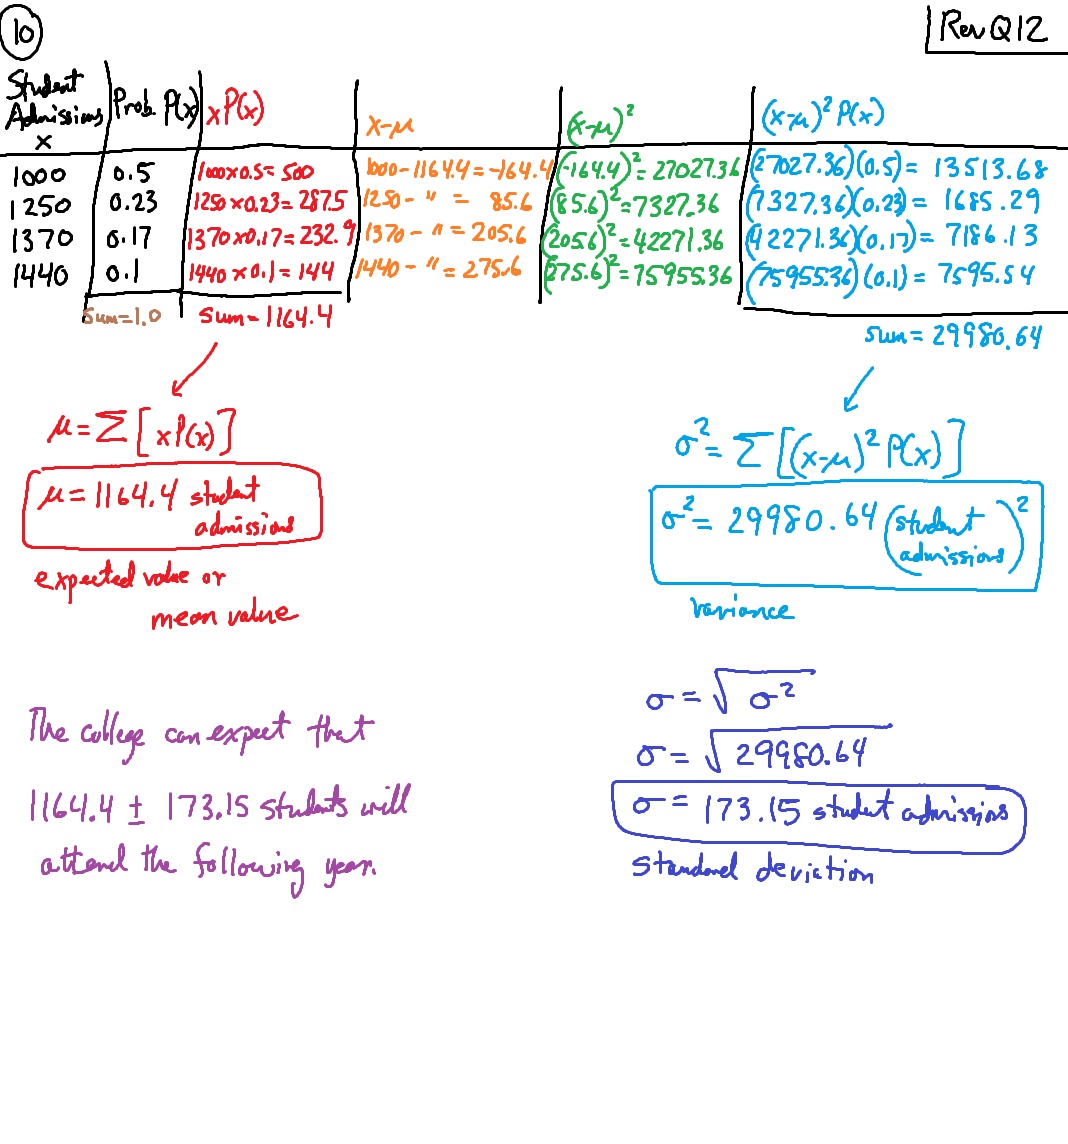 10
Rev Q12
Student Admissions x | Prob. P(x) | xP(x) | x-μ | (x-μ)² | (x-μ)² P(x)
1000 | 0.5 | 1000x0.5=500 | 1000-1164.4=-164.4 | (-164.4)²=27027.36 | (27027.36)(0.5)= 13513.68
1250 | 0.23 | 1250x0.23=287.5 | 1250- " = 85.6 | (85.6)²=7327.36 | (7327.36)(0.23)= 1685.29
1370 | 0.17 | 1370x0.17=232.9 | 1370- " = 205.6 | (205.6)²=42271.36 | (42271.36)(0.17)= 7186.13
1440 | 0.1 | 1440x0.1=144 | 1440- " =275.6 | (275.6)²=75955.36 | (75955.36)(0.1)= 7595.54
sum=1.0 | sum=1164.4 | sum=29980.64
μ=Σ[xP(x)]
μ=1164.4 student
admissions
expected value or
mean value
σ²=Σ[(x-μ)² P(x)]
σ²= 29980.64 (student
admissions)²
variance
σ=√σ²
σ=√29980.64
σ= 173.15 student admissions
standard deviation
The college can expect that
1164.4 ± 173.15 students will
attend the following year.